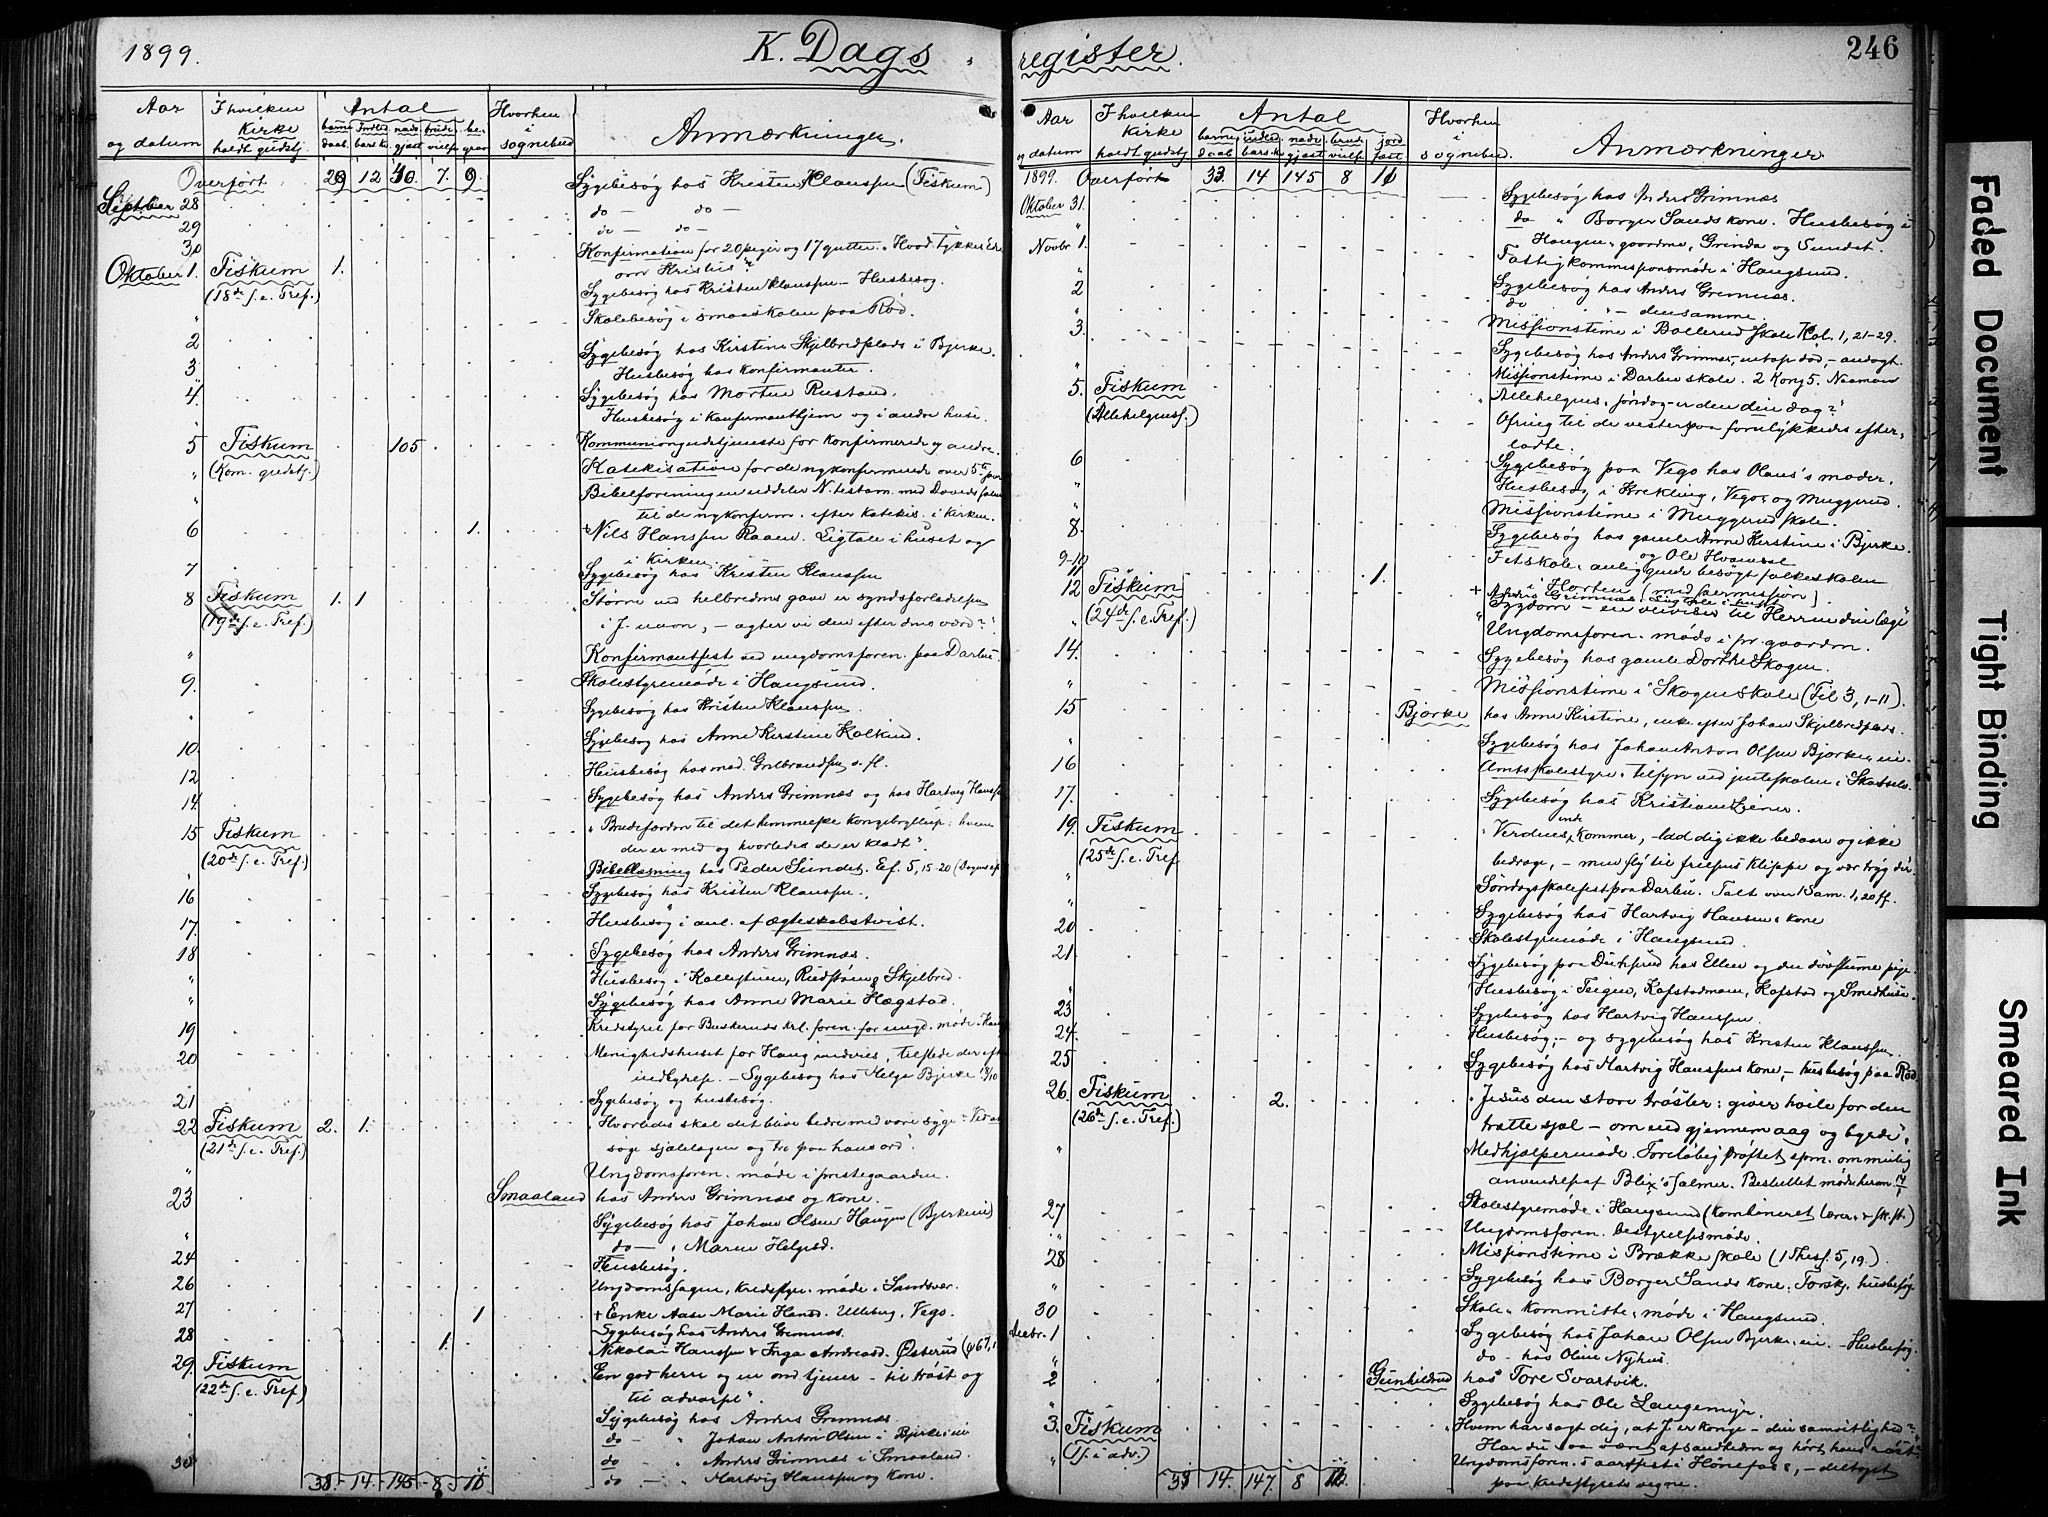 1899.
K. Dags
Aar og datum
I hvilken Kirke holdt gudstj.
Antal
barne daab
nad gjæst
Hvorhen i sognebud
Anmærkninger
Overført 12 7. 9
Sygebesøg hos Kristen Klaussen (Fiskum)
Septber 28
do — do —
29
do — do —
30
Konfirmation for 20 piger og 17 gutter. "Hvad tykkes Eder
Oktober 1. Fiskum 1.
om Kristus?"
(18de s. e. Tref.)
Sygebesøg hos Kristen Klaussen — Husbesøg.
Skolebesøg i smaaskolen paa Rød.
2
Sygebesøg hos Kirstine Skjelbredplads i Bjerke.
3.
Husbesøg hos konfirmanter.
4.
Sygebesøg hos Morten Rustand.
Husbesøg i konfirmanthjem og i andre huse.
5 Fiskum 105
Kommuniongudstjeneste for konfirmerede og andre.
(Kom. gudstj.)
Katekisation for de nykonfirmerede over 5te part
Bibelforeningen uddeler N. testam. med Davids salmer
til de nykonfirm. efter katekis. i kirken.
6 1.
+ Nils Hanssen Raaen. Ligtale i huset og
i kirken.
7
Sygebesøg hos Kristen Klaussen
8 Fiskum 1. 1
"Større end helbredens gave er syndsforladelsen
(19de s. e. Tref.)
i J. navn, — agter vi den efter dens værd?"
Konfirmantfest ved ungdomsforen. paa Darbu.
9.
Skolestyremøde i Haugsund.
Sygebesøg hos Kristen Klaussen.
Sygebesøg hos Anne Kirstine Kolkind.
10.
Husbesøg hos mad. Gulbrandsen o. fl.
12
Sygebesøg hos Anders Grimnæs og hos Hartvig Hanssen
14.
15 Fiskum
"Brudefærden til det himmelske kongebryllup: hvem
(20de s. e. Tref.)
der er med og hvorledes de er klædt".
Bibellæsning hos Peder Sundet. Ef. 5, 15-20 (Dagens ep.
16
Sygebesøg hos Kristen Klaussen.
17.
Husbesøg i anl. af ægteskabstvist.
18
Sygebesøg hos Anders Grimnæs.
Husbesøg i Kollestuen, Rudstøen & Skjelbred.
Sygebesøg hos Anne Marie Hægstad.
19
Kredsstyret for Buskeruds krl. foren. for ungd. møde i Haug
20
Menighedshuset for Haug indvies, tilstede der efter
indbydelse. — Sygebesøg hos Helge Bjerke 18/10
21
Sygebesøg og husbesøg.
22 Fiskum 2. 1.
"Hvorledes skal det blive bedre med vore syge? Ved at
(21de s. e. Tref.)
søge sjælelægen og tro paa hans ord".
Ungdomsforen. møde i prestegaarden.
23 Smaaland
hos Anders Grimnæs og kone.
Sygebesøg hos Johan Olsen Haugen (Bjerkeeie)
do — " Maren Helgesd.
24
Husbesøg.
26
Ungdomssagen, kredsstyr. møde i Sandsvær.
27 1
+ Enke Aase Marie Hansd. Ulleberg, Vego.
28
Sygebesøg hos Anders Grimnæs.
1.
Nikolai Hanssen & Inga Andreasd. Østerud
29. Fiskum
"En god herre og en ond tjener — til trøst og
(22de s. e. Tref.)
til advarsel".
Sygebesøg hos Anders Grimnæs
do — " Johan Anton Olsen i Bjerkeeie
30
do — " Anders Grimnæs i Smaaland.
do — " Hartvig Hanssen og kone.
14. 145 8
register.
246
Aar og datum
I hvilken Kirke holdt gudstj.
Antal
barne daab
nad gjæst
brude vielse
jord fæst
Hvorhen i sognebud
Anmærkninger
1899. Overført 33 14 145 8
Oktober 31.
Sygebesøg hos Anders Grimnæs
do " Borger Sands kone. Husbesøg i
Novbr 1.
Haugen-gaardene, Grinda og Sundet.
Fattigkommissionsmøde i Haugsund.
2
Sygebesøg hos Anders Grimnæs.
do " — densamme.
3.
Missionstime i Bollerud skole Kol. 1, 21-29.
Sygebesøg hos Anders Grimnæs, netop død, — andagt.
Missionstime i Darbu skole. 2 Kong. 5. Naaman
5. Fiskum
"Allehelgens-søndag — er den din dag?"
(Allehelgensf.)
Ofring til de vesterpaa forulykkedes efter-
ladte.
6
Sygebesøg paa Vego hos Olaus's moder.
Husbesøg i Krekling, Vego og Muggerud.
Missionstime i Muggerud skole.
8.
Sygebesøg hos gamle Anne Kirstine i Bjerke.
og Ole Hvamsal
9-10
11
i Horten (med permission).
12 Fiskum 1.
+ Anders Grimnæs. Ligtale i huset
(24de s. e. Tref.)
"Sygdom — en veiviser til Herren din læge"
Ungdomsforen. møde i pr. gaarden.
14.
Sygebesøg hos gamle Dorthe Skogen.
Missionstime i Skogen skole (Fil 3, 1-11).
15 Bjørke
hos Anne Kirstine, enke efter Johan Skjelbredplads.
Sygebesøg hos Johan Anton Olsen Bjørkeeie.
16
Amtsskolestyre: tilsyn ved pigeskolen i Skotselv.
17.
Sygebesøg hos Kristiane Teiner.
19. Fiskum
"Verdens ende kommer, — lad dig ikke bedaare og ikke
(25de s. e. Tref.
bedrage, — men fly til frelsens klippe og vær tryg der
Søndagsskolefest paa Darbu. Talt over 1 Sam. 1, 20 ff.
20
Sygebesøg hos Hartvig Hansens kone
21
Skolestyremøde i Haugsund.
Sygebesøg paa Dueserud hos Ellen og den døvstumme pige.
Husbesøg i Teigen, Kafstadmoen, Kafstad og Smedhuus.
23
Sygebesøg hos Hartvig Hanssen.
24.
Husbesøg, — og sygebesøg hos Kristen Klaussen.
25
Sygebesøg hos Hartvig Hanssens kone, — husbesøg paa Rød
26. Fiskum 2.
"Jesus den store trøster: giver hvile for den
(26de s. e. Tref.)
trætte sjæl — om end gjennem aag og byrde".
Medhjælpermøde. Foreløbig drøftet spm. om mulig
anvendelse af Blix's salmer. Besluttet møde herom
27
Skolestyremøde i Haugsund (kombineret lærer- & sk. st.)
Ungdomsforen. bestyrelsesmøde.
28
Missionstime i Brække skole (1 Thess. 5, 19.)
Sygebesøg hos Borger Sands kone. Torsby, husbesøg.
30
Skole-komitte-møde i Haugsund.
Decbr. 1
Sygebesøg hos Johan Olsen Bjerkeeie. — Husbesøg.
do — hos Oline Nyhus.
2 Gunhildrud
hos Tore Svartvik.
Sygebesøg hos Ole Langemyr.
3. Fiskum
"Hvem har sagt dig, at J. er konge — din samvittighed?
(1 s. i adv.)
Har du saa været af sandheden og hørt hans røst?"
Ungdomsforen. 5 aarsfest i Hønefoss, — deltaget
paa kredsstyrets vegne.
33 14. 147. 8
Faded Document
Tight Binding
Smeared Ink